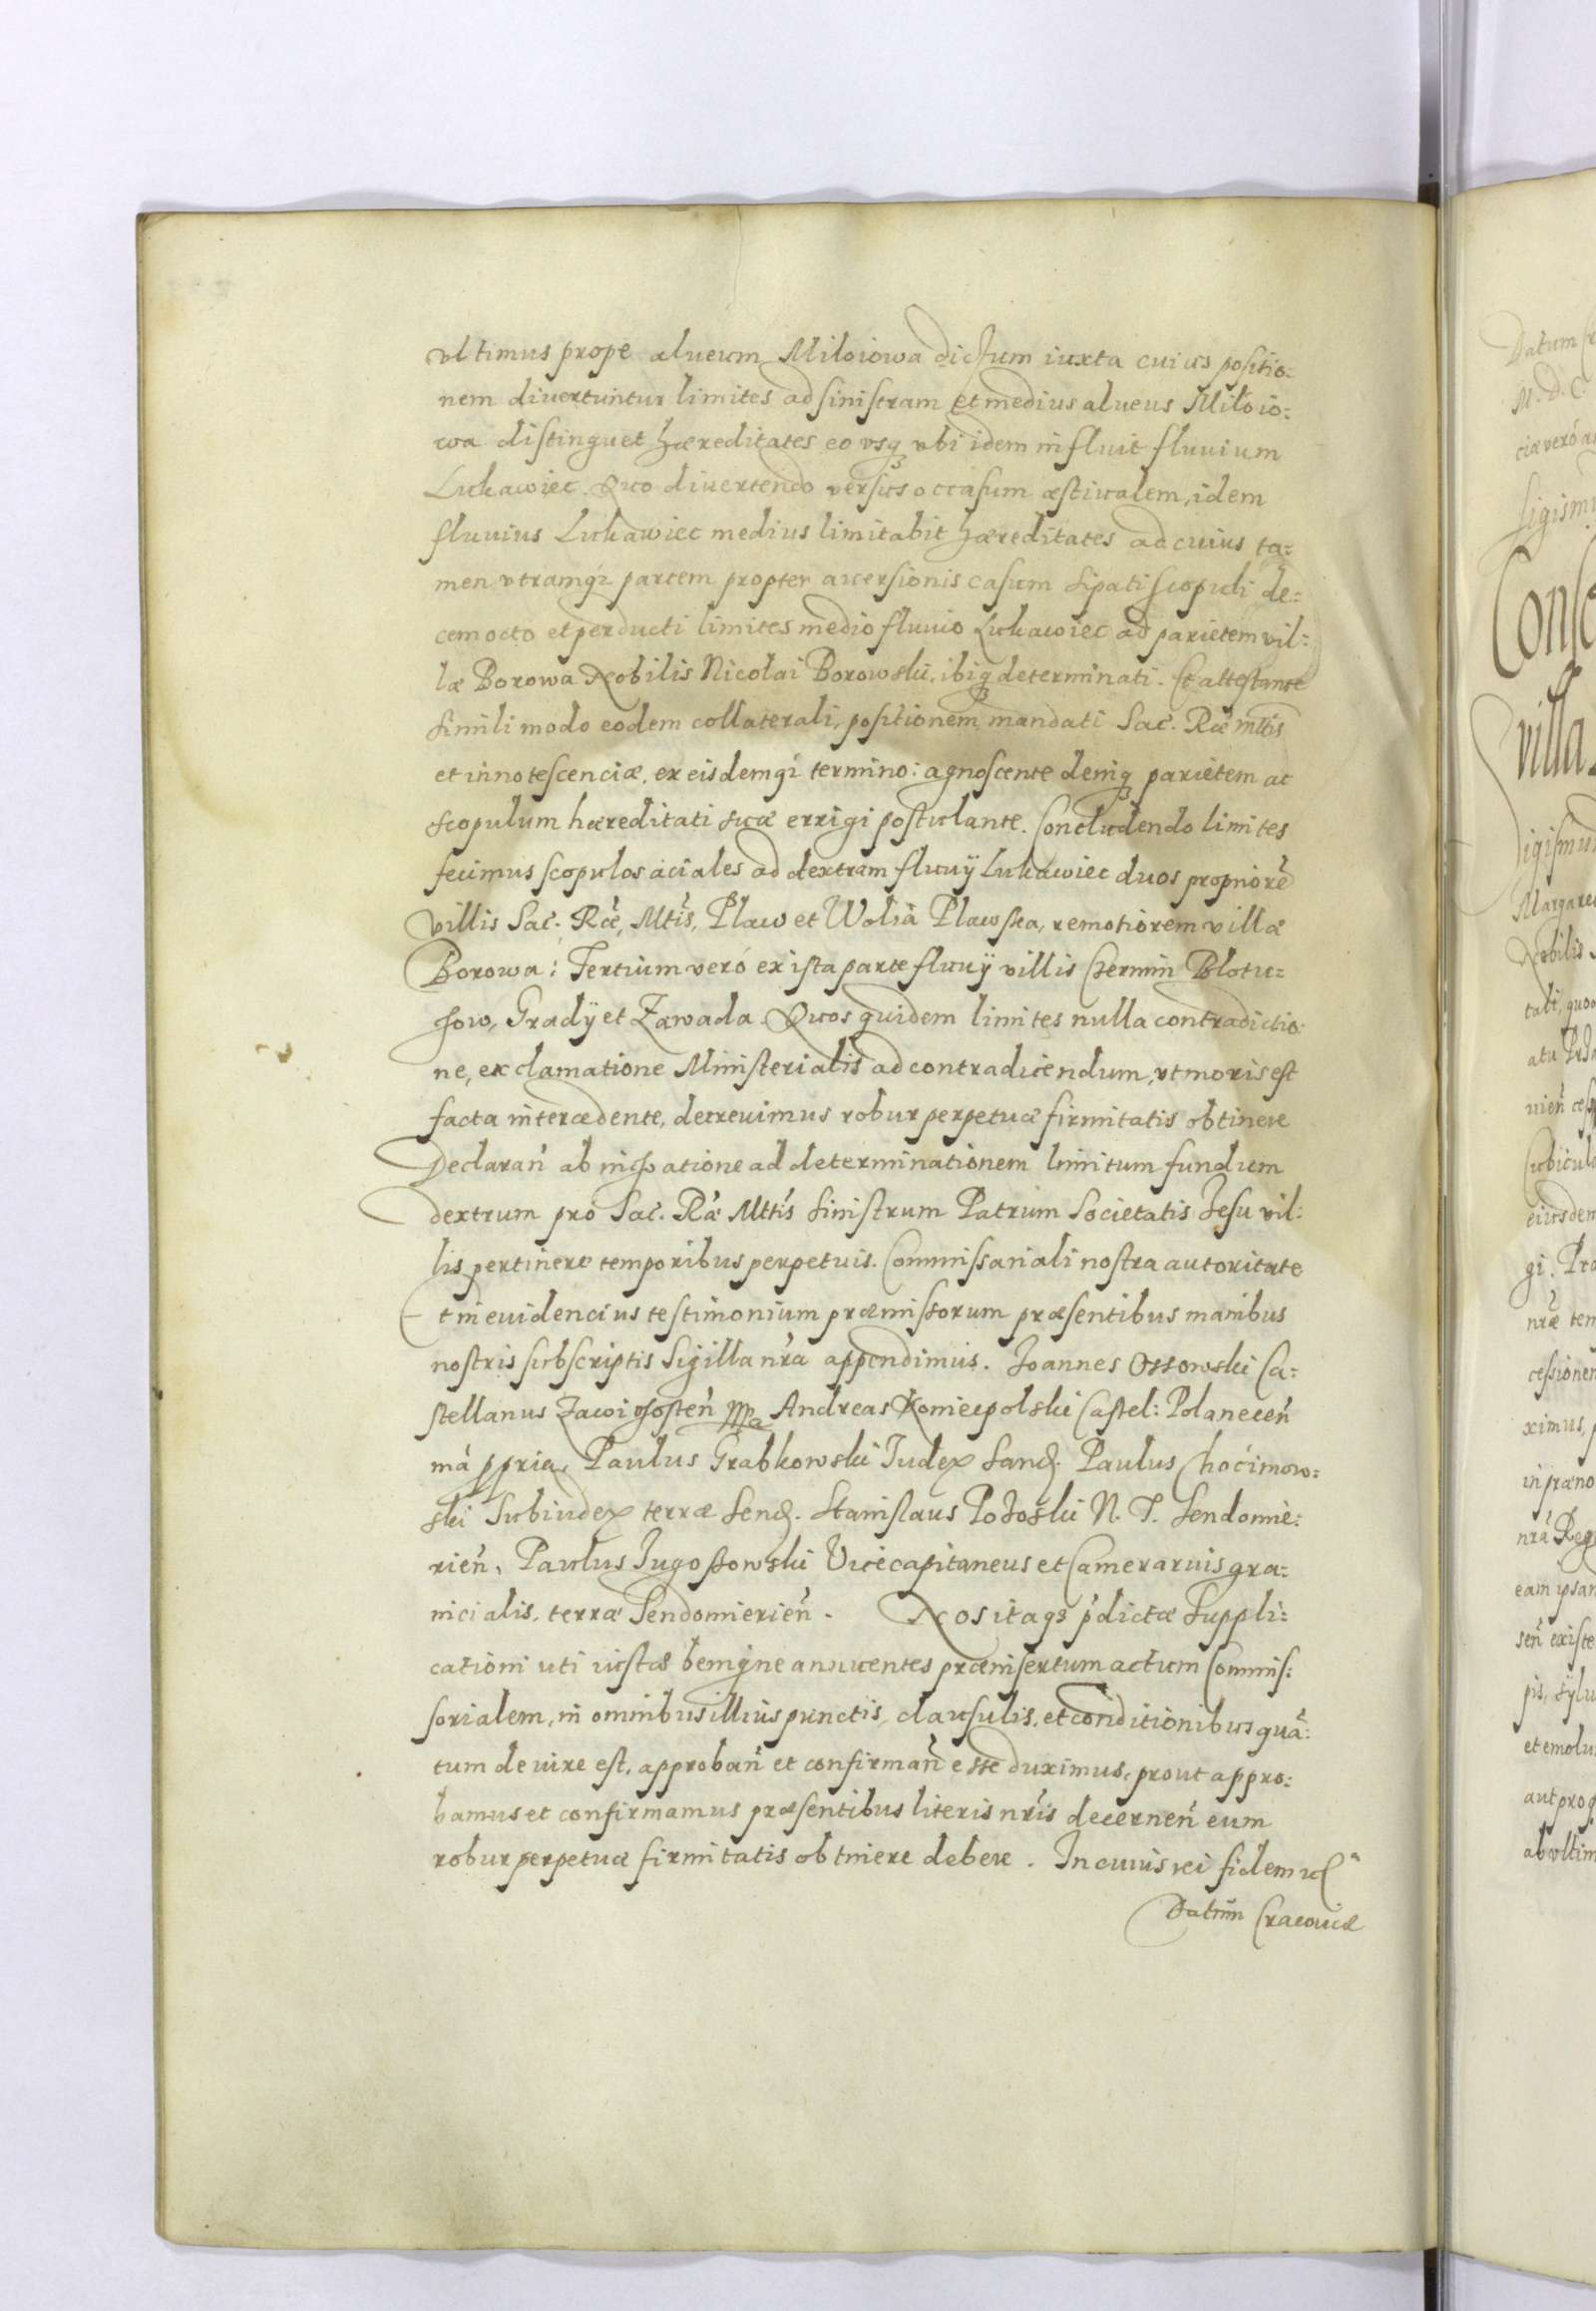 vltimus prope alueum Miloiowa dictum iuxta cuius positio:
nem divertuntur limites ad sinistram et medius alueus Miloio:
wa distinguet hæreditates eo vsq vbi idem influit fluuium
Lukawiec. Quo diuertendo versus occasum æstiualem, idem
fluuius Lukawiec medius limitabit hæreditates ad cuius ta:
men vtramq; partem propter auersionis casum sipati scopuli de:
cem octo et perducti limites medio fluuio Lukawiec ad parietem vil:
læ Borowa Nobilis Nicolai Borowski, ibiq determinati. Et attestante
simili modo eodem collaterali, positionem mandati Sac. Ræ mttis
et innotescenciæ, ex eisdemq; termino: agnoscente deniq parietem ac
scopulum hæreditati suæ errigi postulante. Concludendo limites
fecimus scopulos aciales ad dextram fluuÿ Lukawiec duos propriorẽ
villis Sac. Ræ, Mtis, Plaw et Wolia Plawska, remotiorem villæ
Borowa: Tertium veró ex ista parte fluuÿ villis Chermin Blotu:
szow, Gradÿ et Zawada. Quos quidem limites nulla contradictio:
ne, exclamatione Ministerialis ad contradicendum, vt moris est
facta intercedente, decreuimus robur perpetuæ firmitatis obtinere
Declarań ab inchoatione ad determinationem limitum fundum
dextrum pro Sac. Ræ Mttis sinistrum Patrum Societatis Jesu vil:
lis pertinere temporibus perpetuis. Commissariali nostra autoritate
Et in euidencius testimonium præmissorum præsentibus manibus
nostris subscriptis Sigilla nra appendimus. Joannes Ossowski Ca:
stellanus Zawichosteń mppa Andreas Koniecpolski Castel: Polaneceń
má ppria, Paulus Grabkowski Judex Sand. Paulus Chocimow:
ski Subiudex terræ Send. Stanislaus Pototski N. T. Sendomie:
rień, Paulus Jugoszowski Vicecapitaneus et Camerarius gra:
nicialis, terræ Sendomierień. Nos itaq3 p̃dictæ Suppli:
cationi uti iustæ benigne annuentes præinsertum actum Commis:
sorialem, in omnibus illius punctis, clausulis, et conditionibus quã:
tum de iure est, approbań et confirmań esse duximus, prout appro:
bamus et confirmamus præsentibus literis nris decerneń eum
robur perpetuæ firmitatis obtinere debere. In cuius rei fidem
Datum Cracouiæ